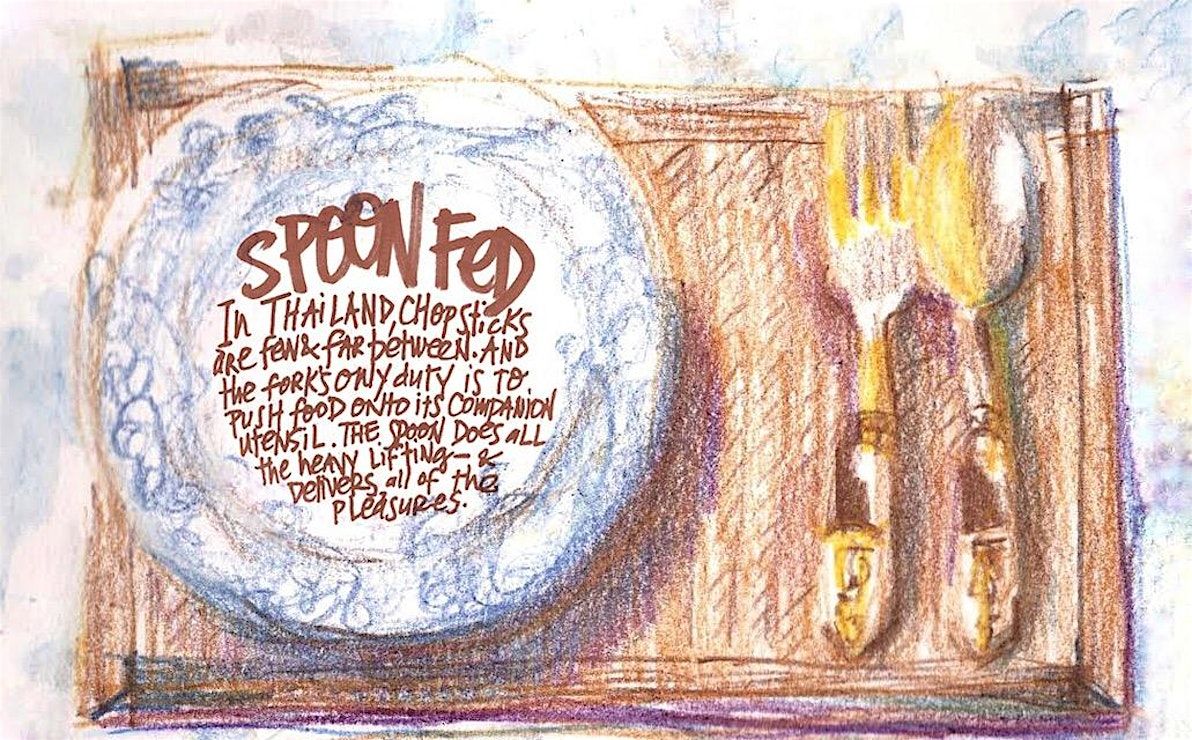 SPOON FED
In THAiLAND, CHOPSticKS
are FEW & FAR between. AND
the fork's only duty is TO
PUSH fooD ONTO its COMPANION
UTENSIL. THE SPOON DOES aLL
the heavy LiFTiNG- &
DeLiVERS all of the
PLeasuRes.